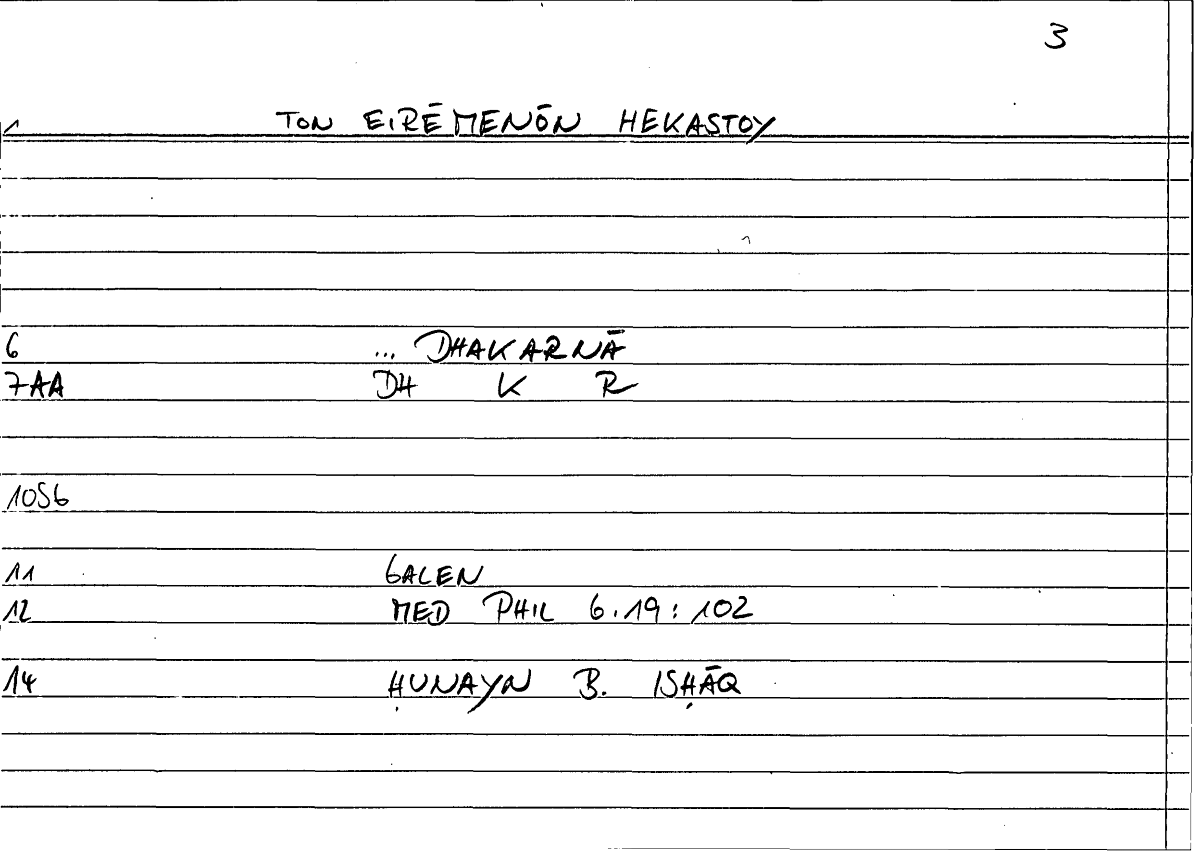 3
1 TON EIRĒMENŌN HEKASTOY
6 ... DHAKARNĀ
7AA DH K R
10S6
11 GALEN
12 MED PHIL 6.19:102
14 ḤUNAYN B. ISḤĀQ